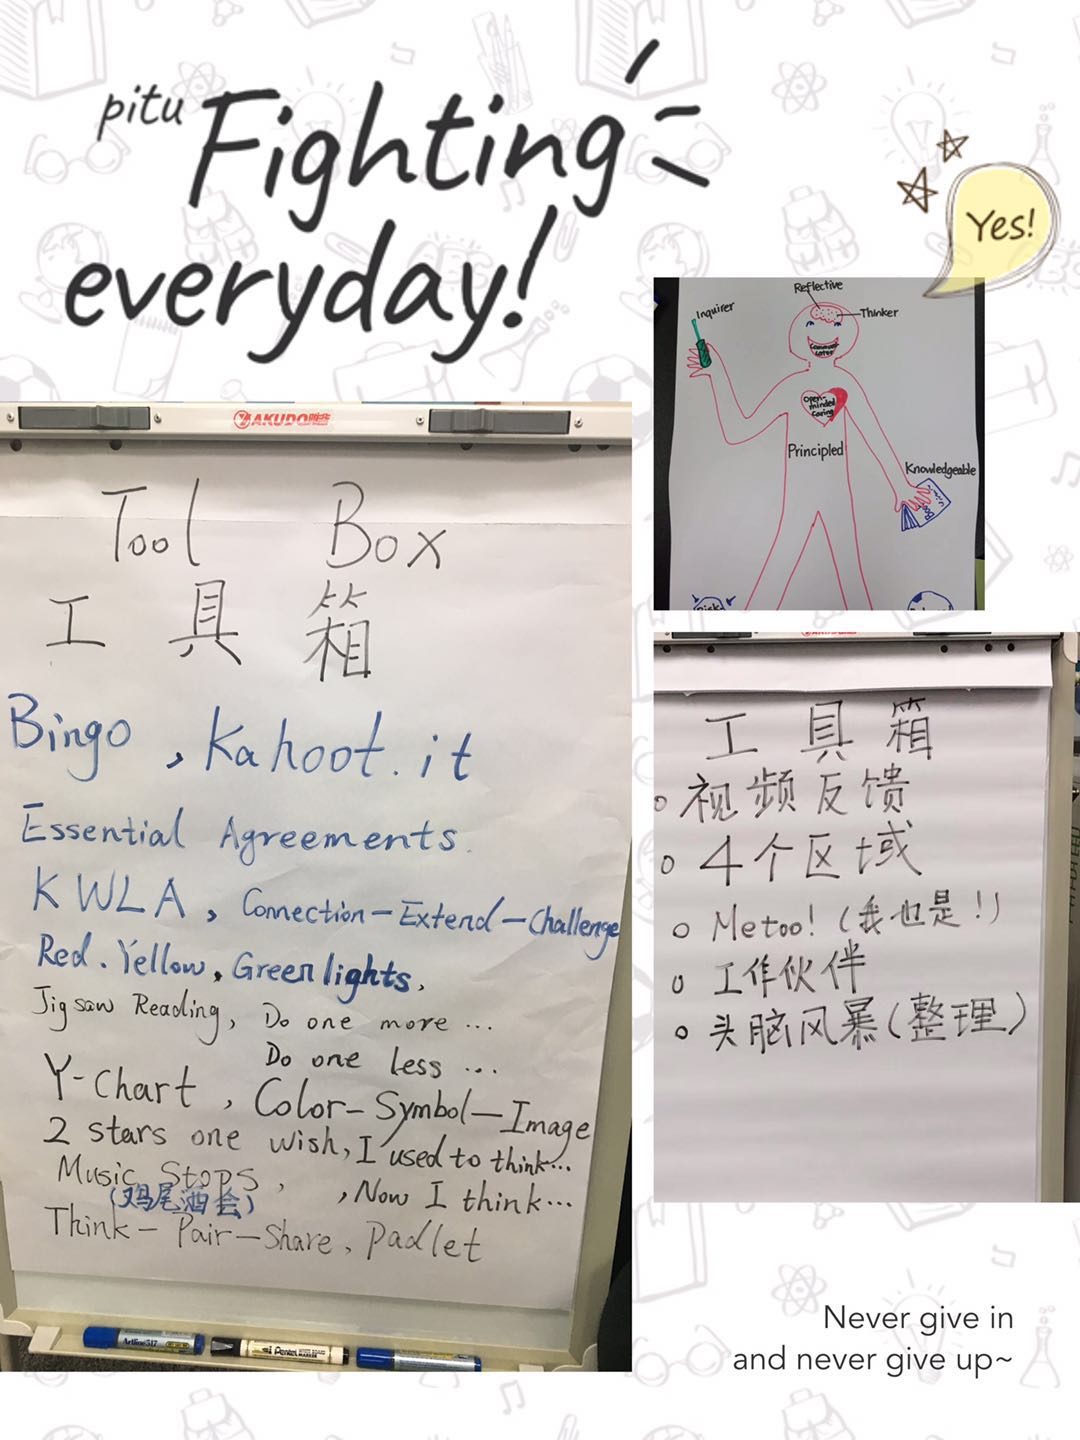 pitu
Fighting
everyday!
Yes!
AKUDO
Tool Box
工具箱
Bingo, Kahoot.it
Essential Agreements.
KWLA, Connection-Extend-Challenge
Red. Yellow, Green lights,
Jigsaw Reading, Do one more ...
Do one less ...
Y-Chart, Color-Symbol-Image
2 stars one wish, I used to think...
Music Stops, , Now I think...
(鸡尾酒会)
Think-Pair-Share, Padlet
Artline 517
Pentel
Reflective
Inquirer
Thinker
Open-
minded
Caring
Principled
Knowledgeable
Risk
工具箱
视频反馈
4个区域
Metoo! (我也是!)
工作伙伴
头脑风暴(整理)
Never give in
and never give up~